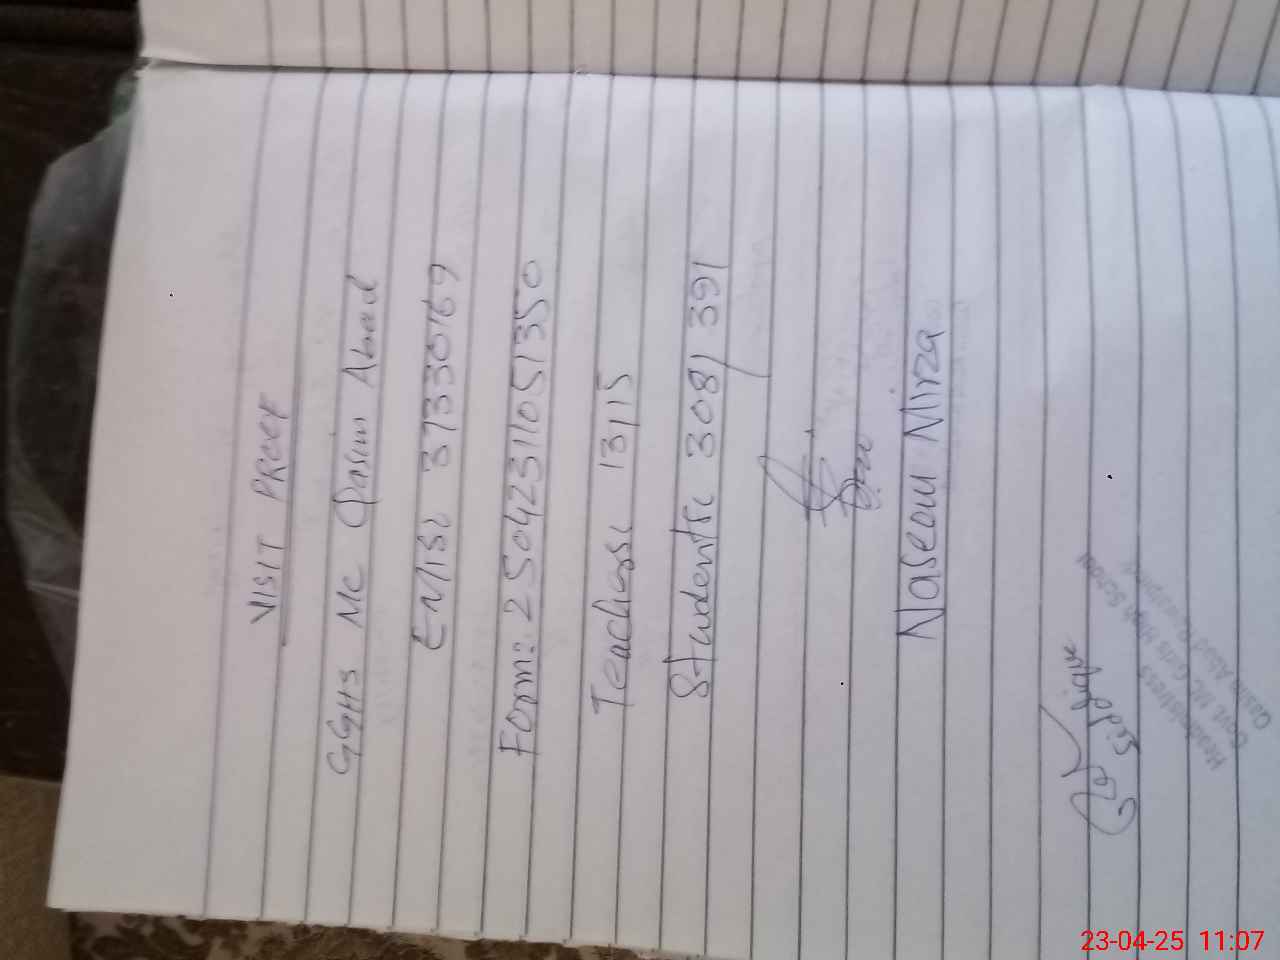 VISIT PROOF
GGHS MC Qasim Abad
EMIS: 37330169
Form: 2504231051350
Teachers: 13/15
Students: 308/391
Naseem Mirza
Siddique
Headmistress
Govt. MC Girls High School
Qasim Abad Rawalpindi
23-04-25 11:07